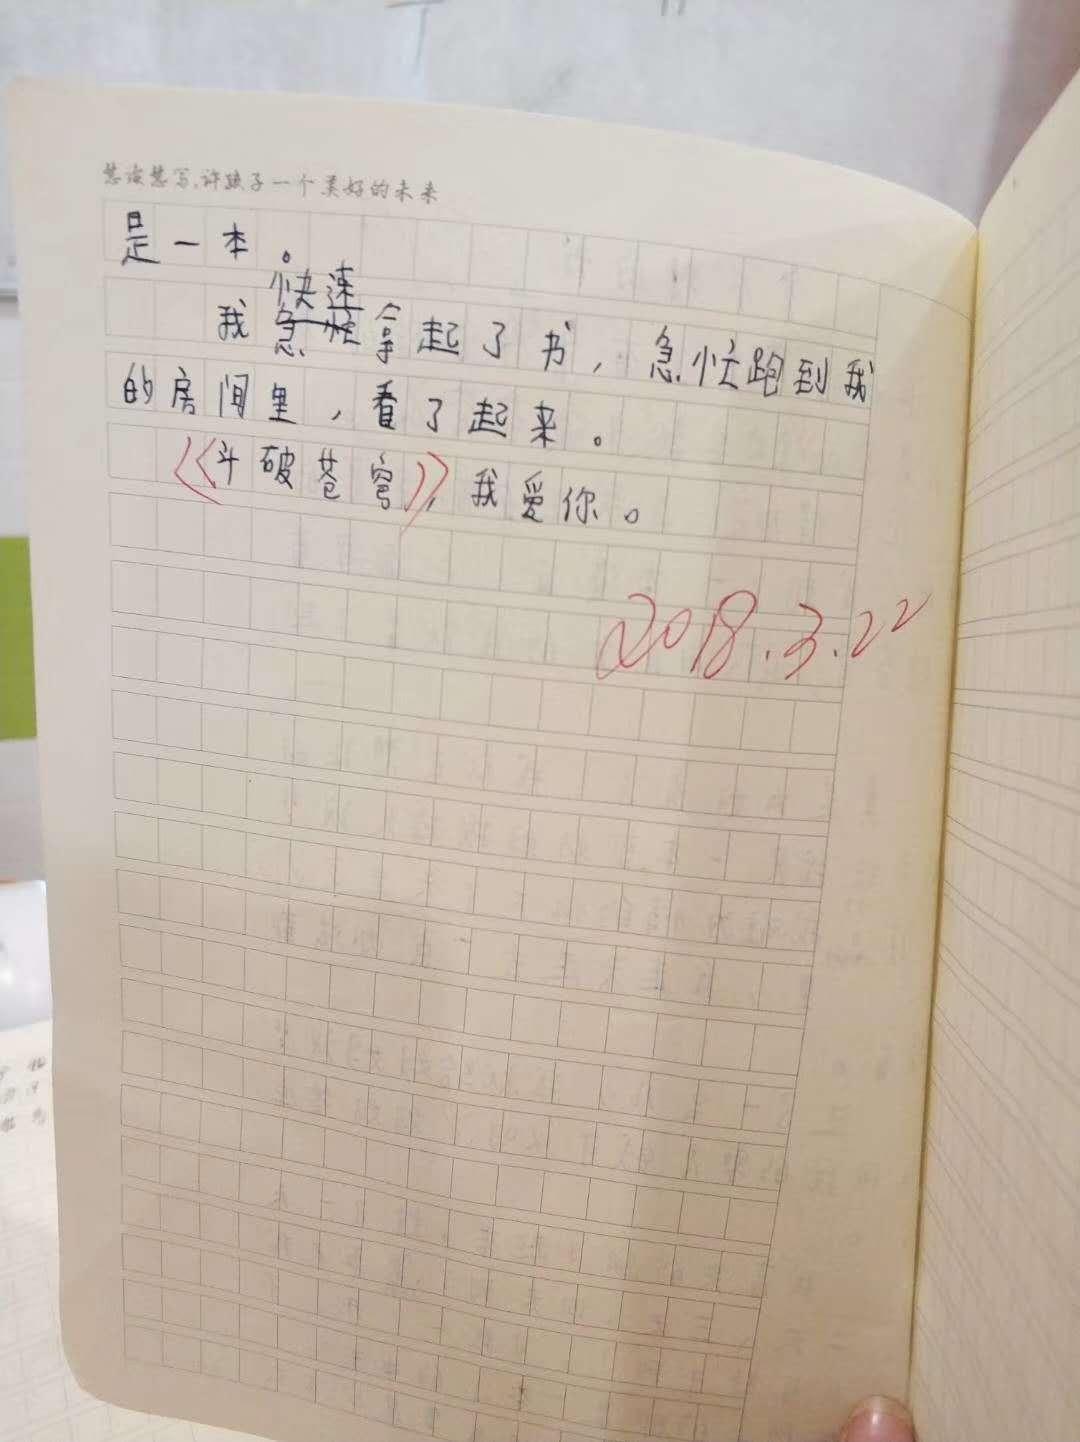 慧读慧写,许孩子一个美好的未来
是一本。
快速
我急忙拿起了书，急忙跑到我
的房间里，看了起来。
《斗破苍穹》，我爱你。
2018.3.22